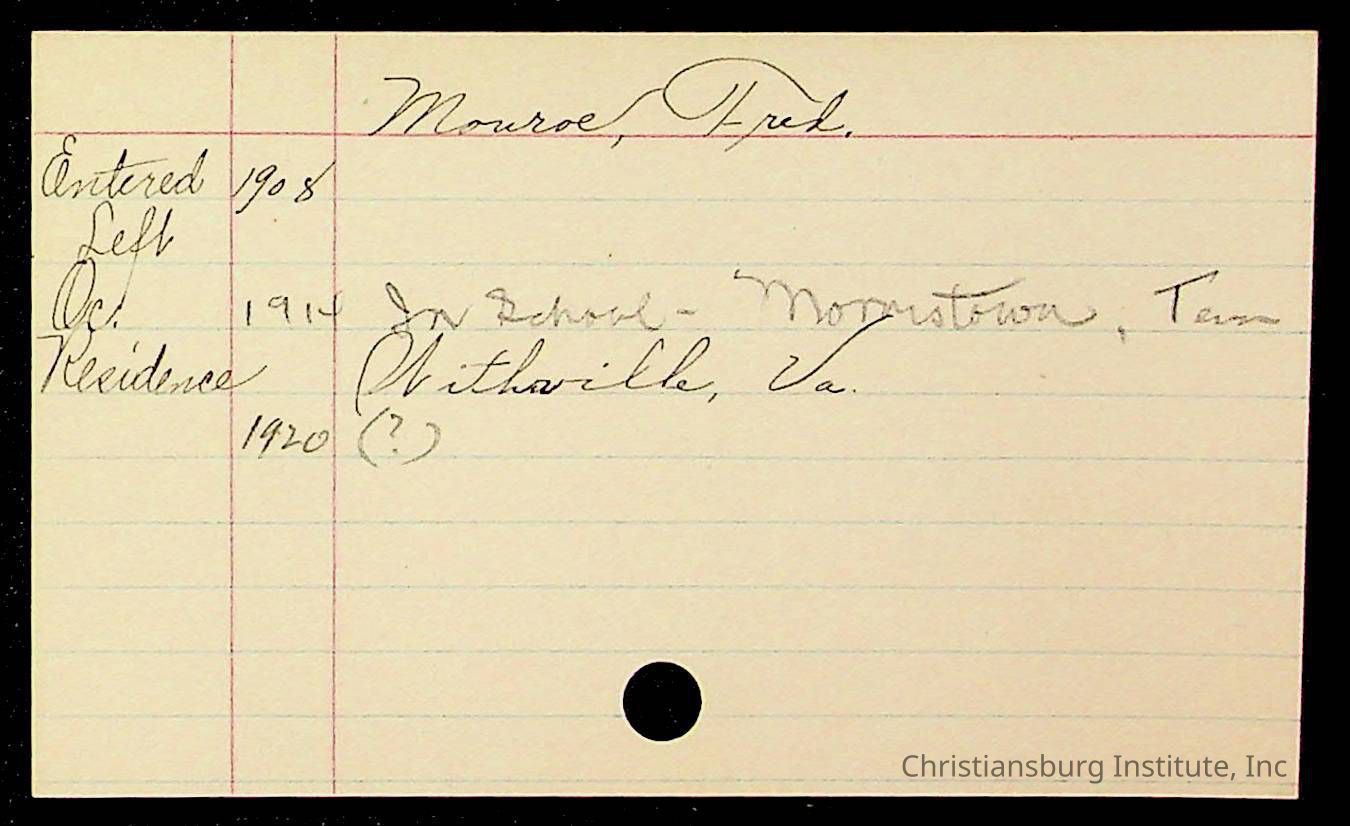 Monroe, Fred.
Entered 1908
Left
Oc. 1914 In School - Morristown, Tenn
Residence Withville, Va.
1920 (?)
Christiansburg Institute, Inc